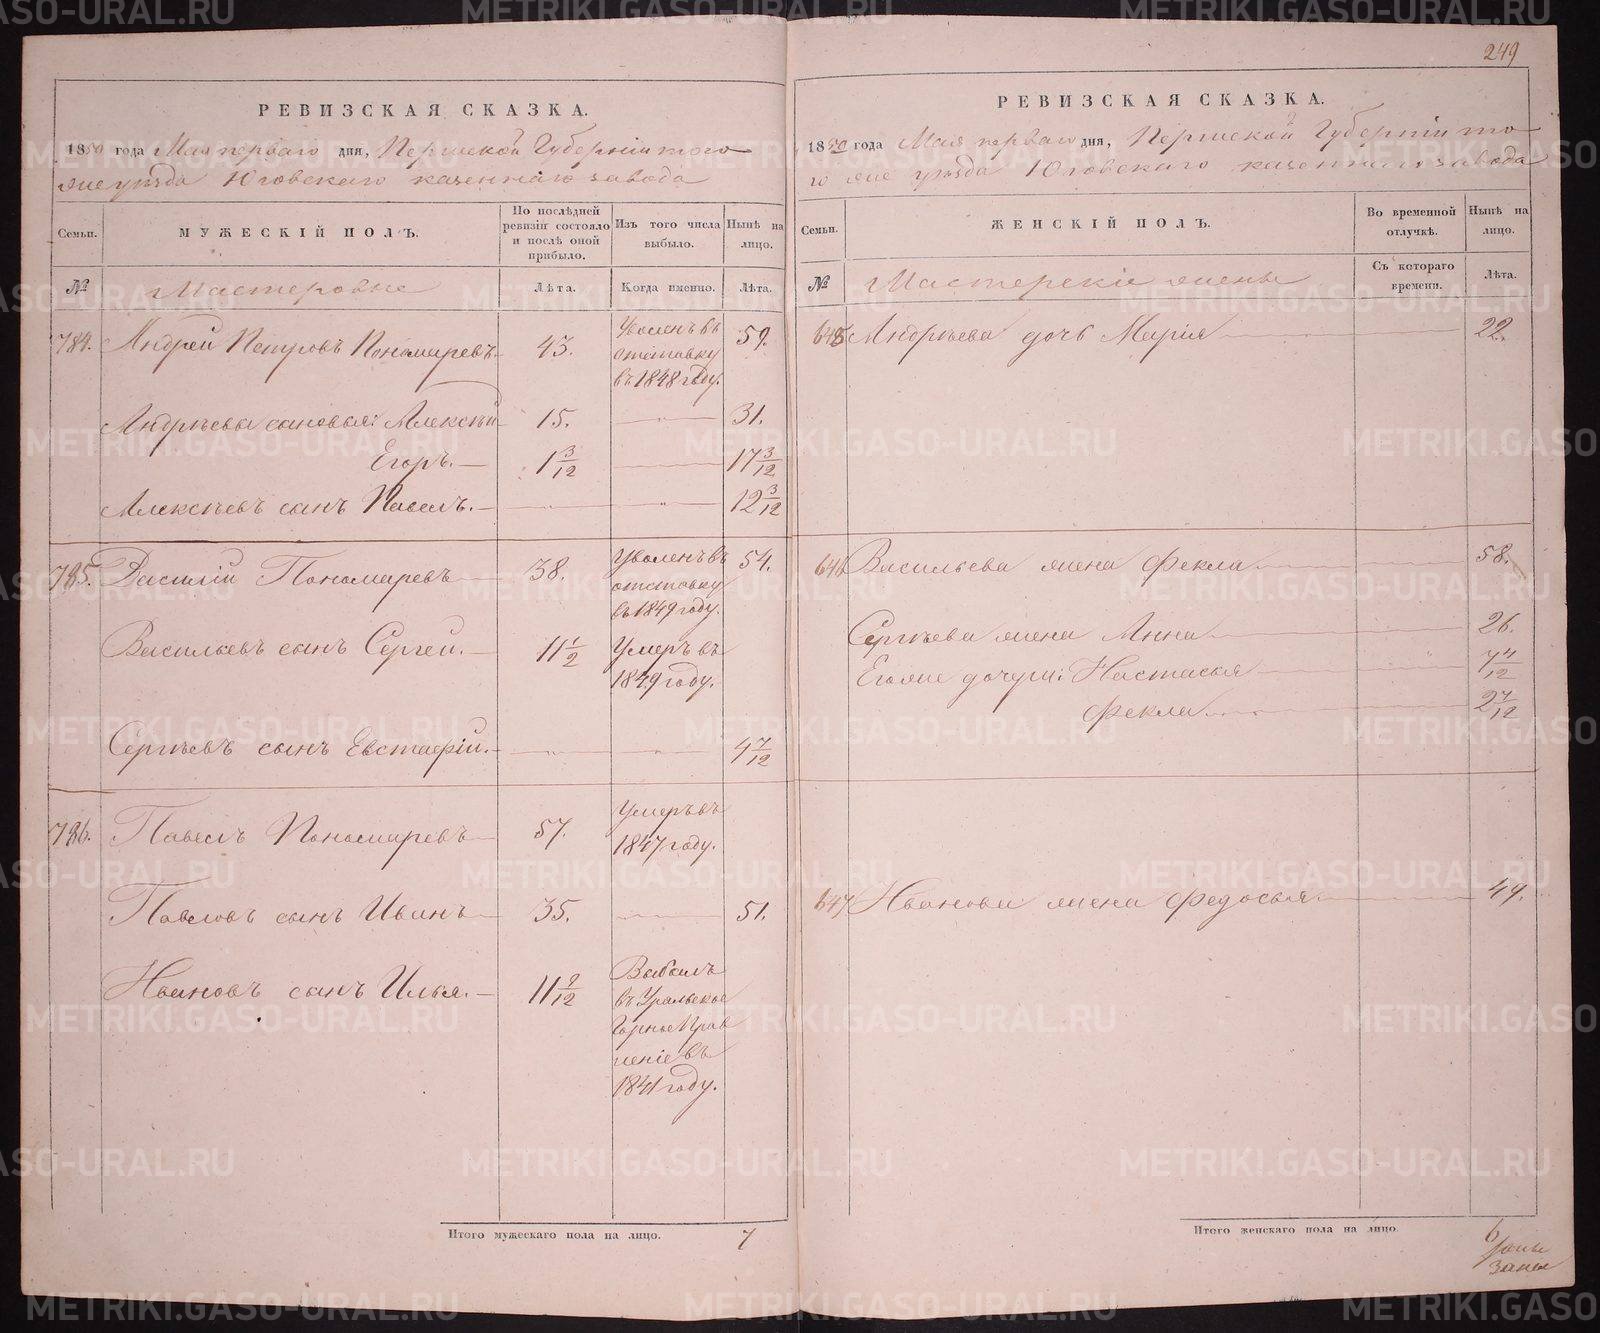 249
РЕВИЗСКАЯ СКАЗКА.
1850 года Мая перваго дня, Пермской Губерніи того
же уѣзда Юговскаго казеннаго завода
Семьи.
МУЖЕСКІЙ ПОЛЪ.
По послѣдней ревизіи состояло и послѣ оной прибыло.
Изъ того числа выбыло.
Нынѣ на лицо.
№
Мастеровые
Лѣта.
Когда именно.
Лѣта.
784. Андрей Петровъ Пономаревъ 43. Уволенъ въ отставку въ 1848 году. 59.
Андрѣевы сыновья: Алексѣй 15. 31.
Егоръ. 1 3/12 17 3/12
Алексѣевъ сынъ Павелъ. 12 3/12
785. Василій Пономаревъ 38. Уволенъ въ отставку въ 1849 году. 54.
Васильевъ сынъ Сергей. 11 1/2 Умеръ въ 1849 году.
Сергѣевъ сынъ Евстафій. 4 7/12
786. Павелъ Пономаревъ 57. Умеръ въ 1847 году.
Павловъ сынъ Иванъ 35. 51.
Ивановъ сынъ Илья. 11 9/12 Выбылъ въ Уральское Горное Правленіе въ 1841 году.
Итого мужескаго пола на лицо. 7
РЕВИЗСКАЯ СКАЗКА.
1850 года Мая перваго дня, Пермской Губерніи то
го же уѣзда Юговскаго казеннаго завода
Семьи.
ЖЕНСКІЙ ПОЛЪ.
Во временной отлучкѣ.
Нынѣ на лицо.
№
Мастерскіе жены
Съ котораго времени.
Лѣта.
645 Андрѣева дочь Марія 22.
646 Васильева жена Фекла 58.
Сергѣева жена Анна 26.
Егоже дочери: Настасья
Фекла
647 Иванова жена Федосья 49.
Итого женскаго пола на лицо. 6
METRIKI.GASO-URAL.RU